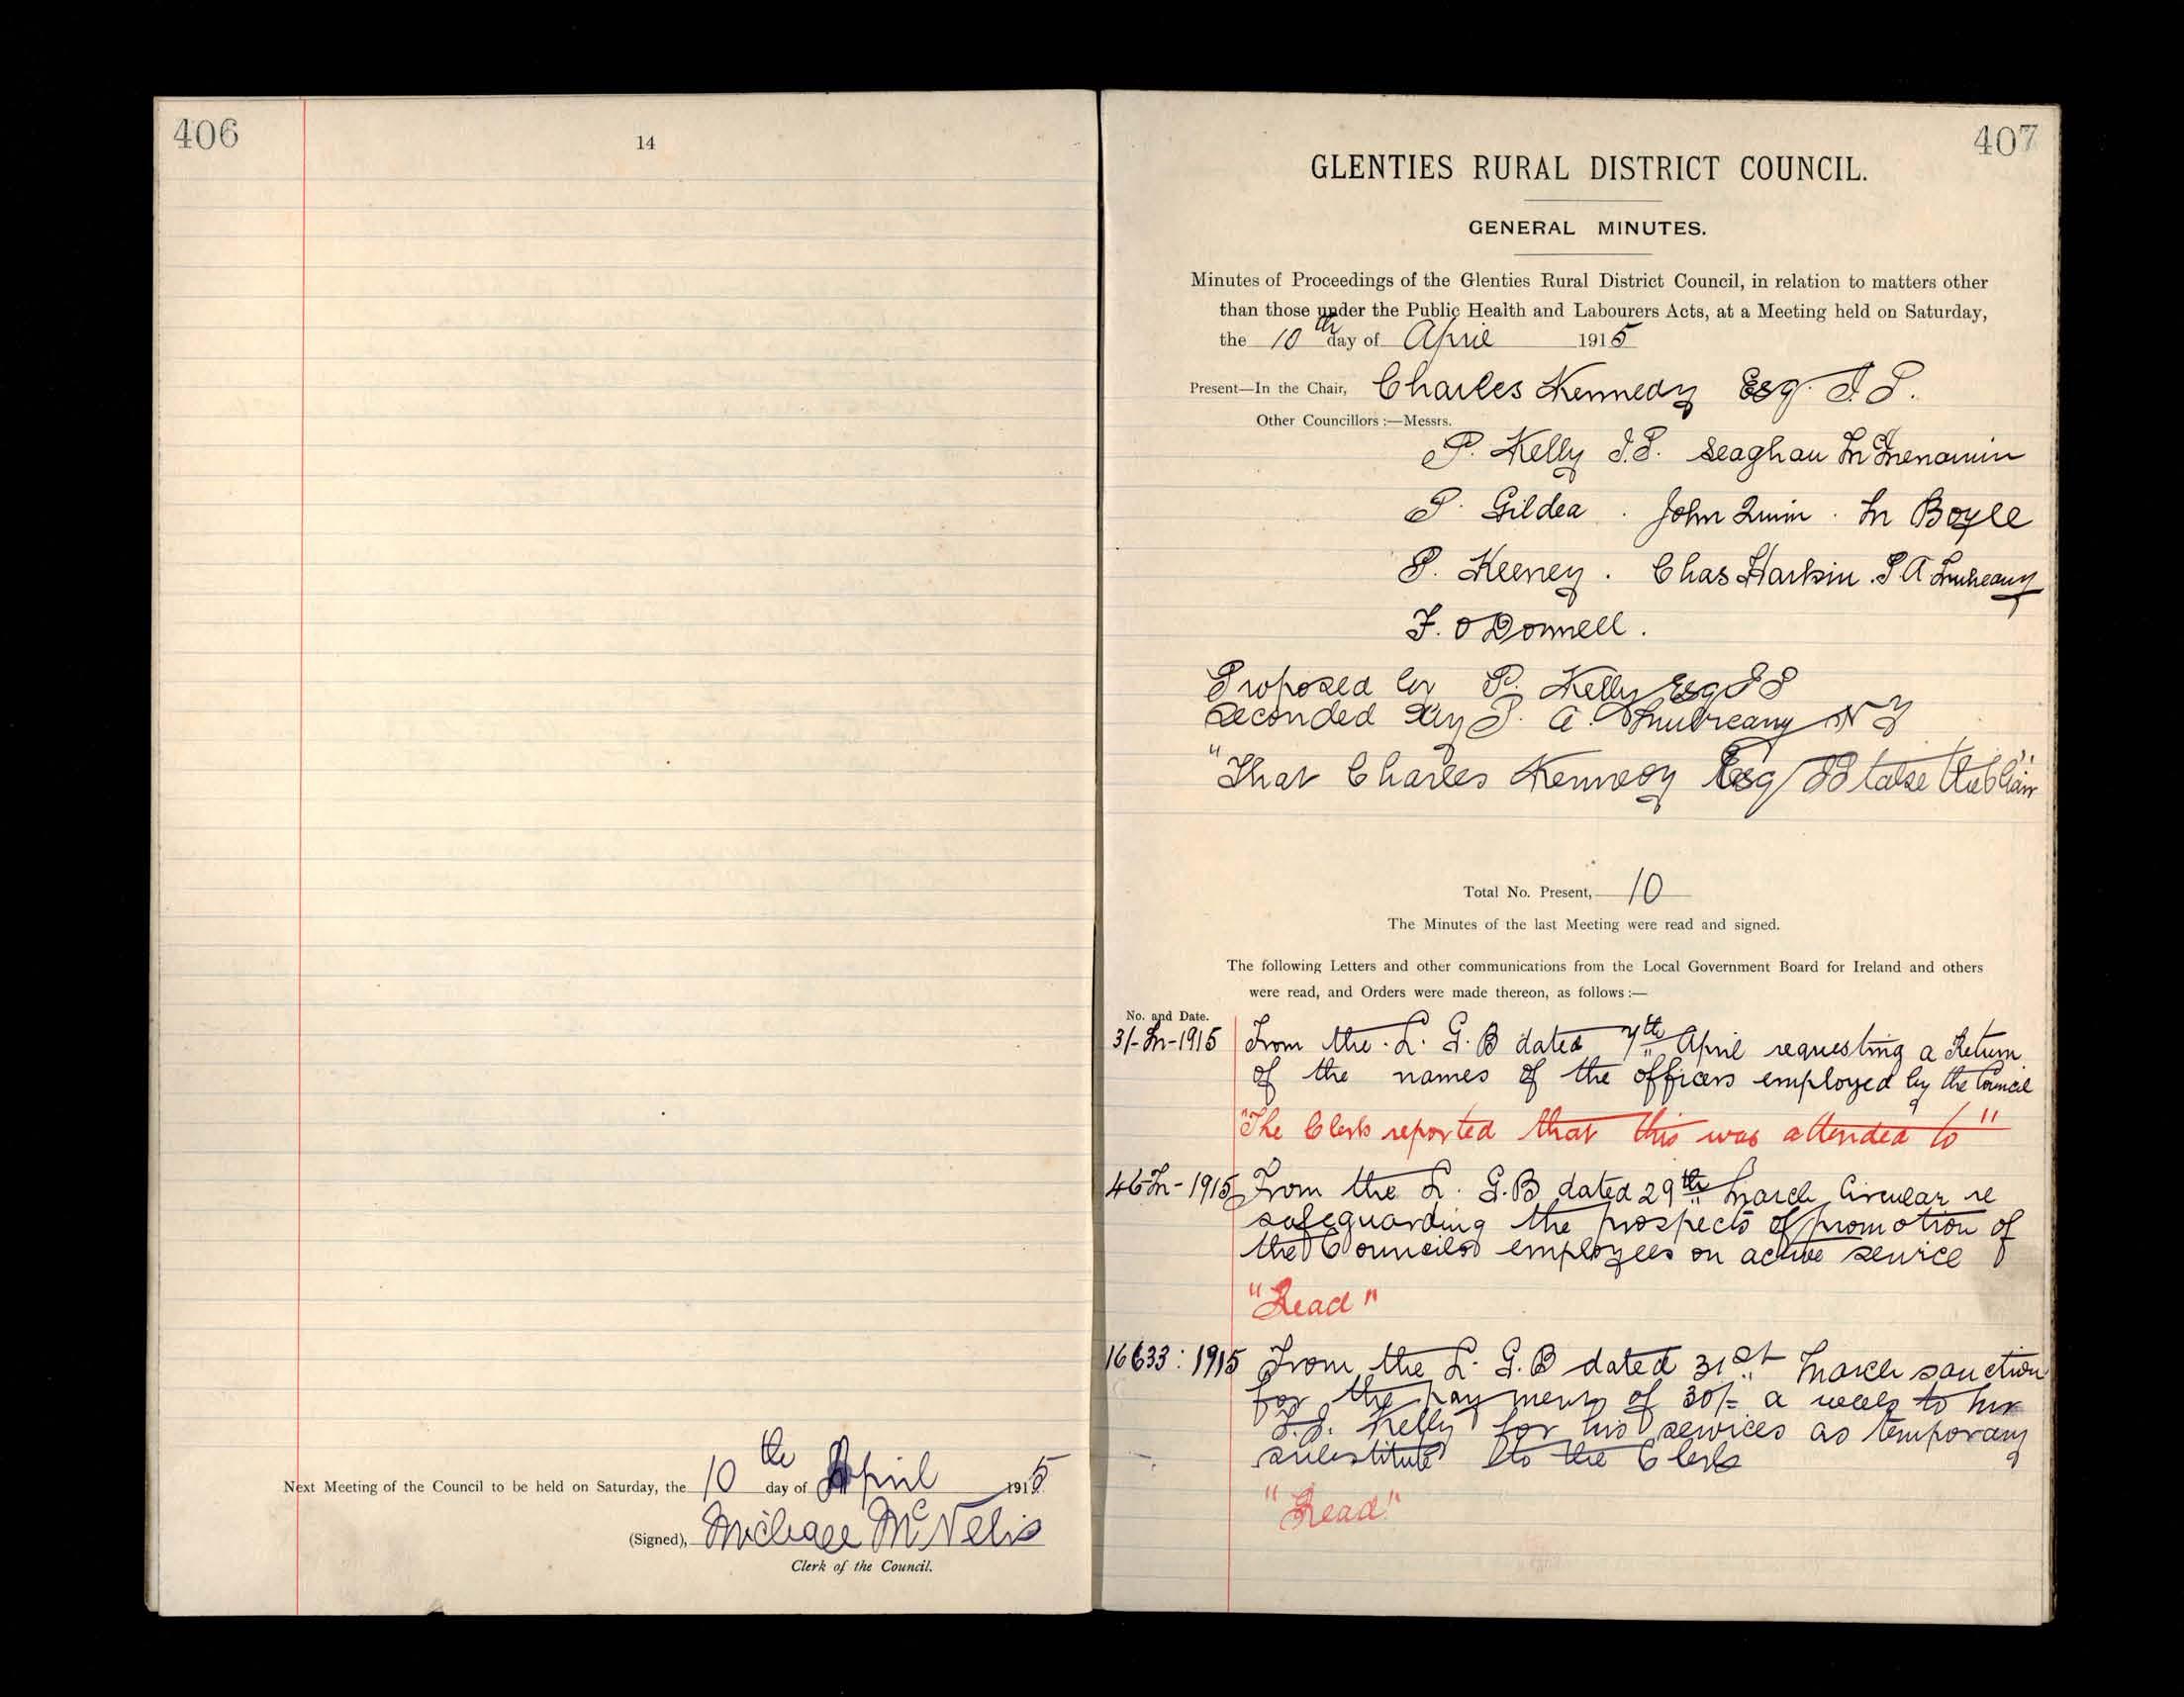 406
14
Next Meeting of the Council to be held on Saturday, the 10th day of April 1915
(Signed), Michael McNelis
Clerk of the Council.
407
GLENTIES RURAL DISTRICT COUNCIL.
GENERAL MINUTES.
Minutes of Proceedings of the Glenties Rural District Council, in relation to matters other
than those under the Public Health and Labourers Acts, at a Meeting held on Saturday,
the 10th day of April 1915
Present—In the Chair, Charles Kennedy Esq. J.P.
Other Councillors :—Messrs.
P. Kelly J.P. Seaghan McMenamin
P. Gildea . John Quinn . M Boyle
P. Keeney . Chas Harkin . P A Mulreany
F. O Donnell .
Proposed by P. Kelly Esq J P
Seconded by P. A. Mulreany
"That Charles Kennedy Esq J P take the Chair"
Total No. Present, 10
The Minutes of the last Meeting were read and signed.
The following Letters and other communications from the Local Government Board for Ireland and others
were read, and Orders were made thereon, as follows :—
No. and Date.
31-M-1915 From the L. G. B dated 7th April requesting a Return
of the names of the officers employed by the Council
"The Clerk reported that this was attended to"
46-M-1915 From the L. G.B dated 29th March Circular re
safeguarding the prospects of promotion of
the Councils employees on active service
"Read"
16633 : 1915 From the L. G. B dated 31st March sanction
for the payment of 30/- a week to Mr
Kelly for his services as temporary
substitute to the Clerk
"Read"